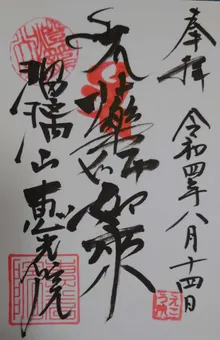 奉拝
令和四年八月十四日
薬師如来
瑠璃山 恵光院